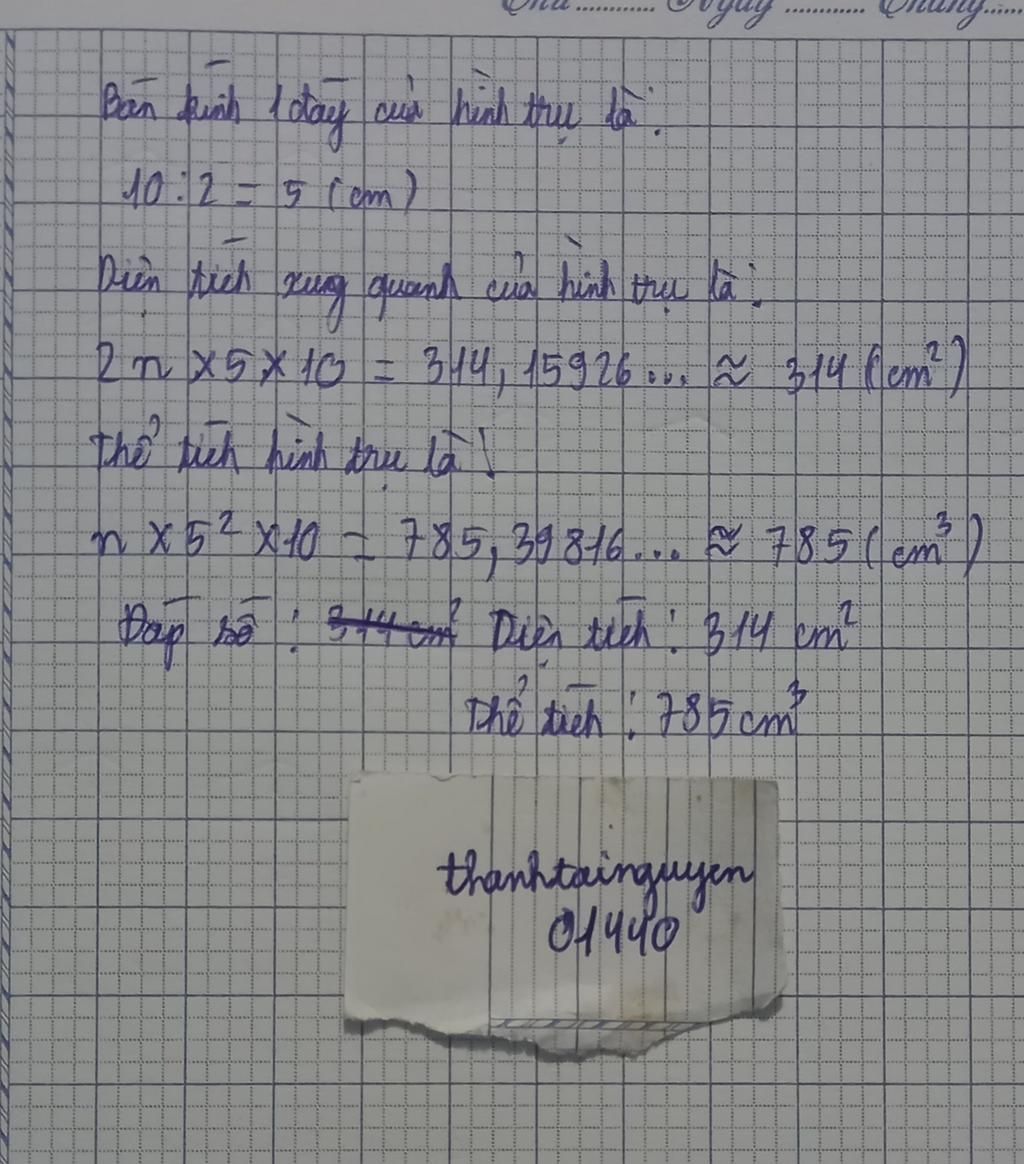 Thứ ............ Ngày ............ Tháng......
Bán kính 1 đáy của hình trụ là:
10 : 2 = 5 (cm)
Diện tích xung quanh của hình trụ là:
2π × 5 × 10 = 314,15926... ≈ 314 (cm²)
Thể tích hình trụ là:
π × 5² × 10 = 785,39816... ≈ 785 (cm³)
Đáp số : 314 cm² Diện tích : 314 cm²
Thể tích : 785 cm³
thanhtainguyen
01440